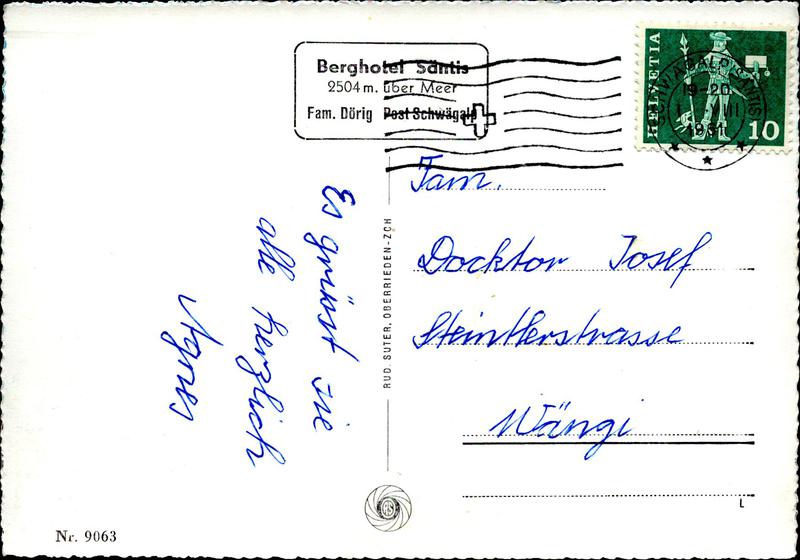 Berghotel Säntis
2504 m. über Meer
Fam. Dörig Post Schwägalp
HELVETIA
10
SCHWÄGALP (SÄNTIS)
19-20
VIII
1961
Es grüsst sie
alle herzlich
Agnes
RUD. SUTER, OBERRIEDEN-ZCH
Fam.
Docktor Josef
Steintlerstrasse
Wängi
L
Nr. 9063